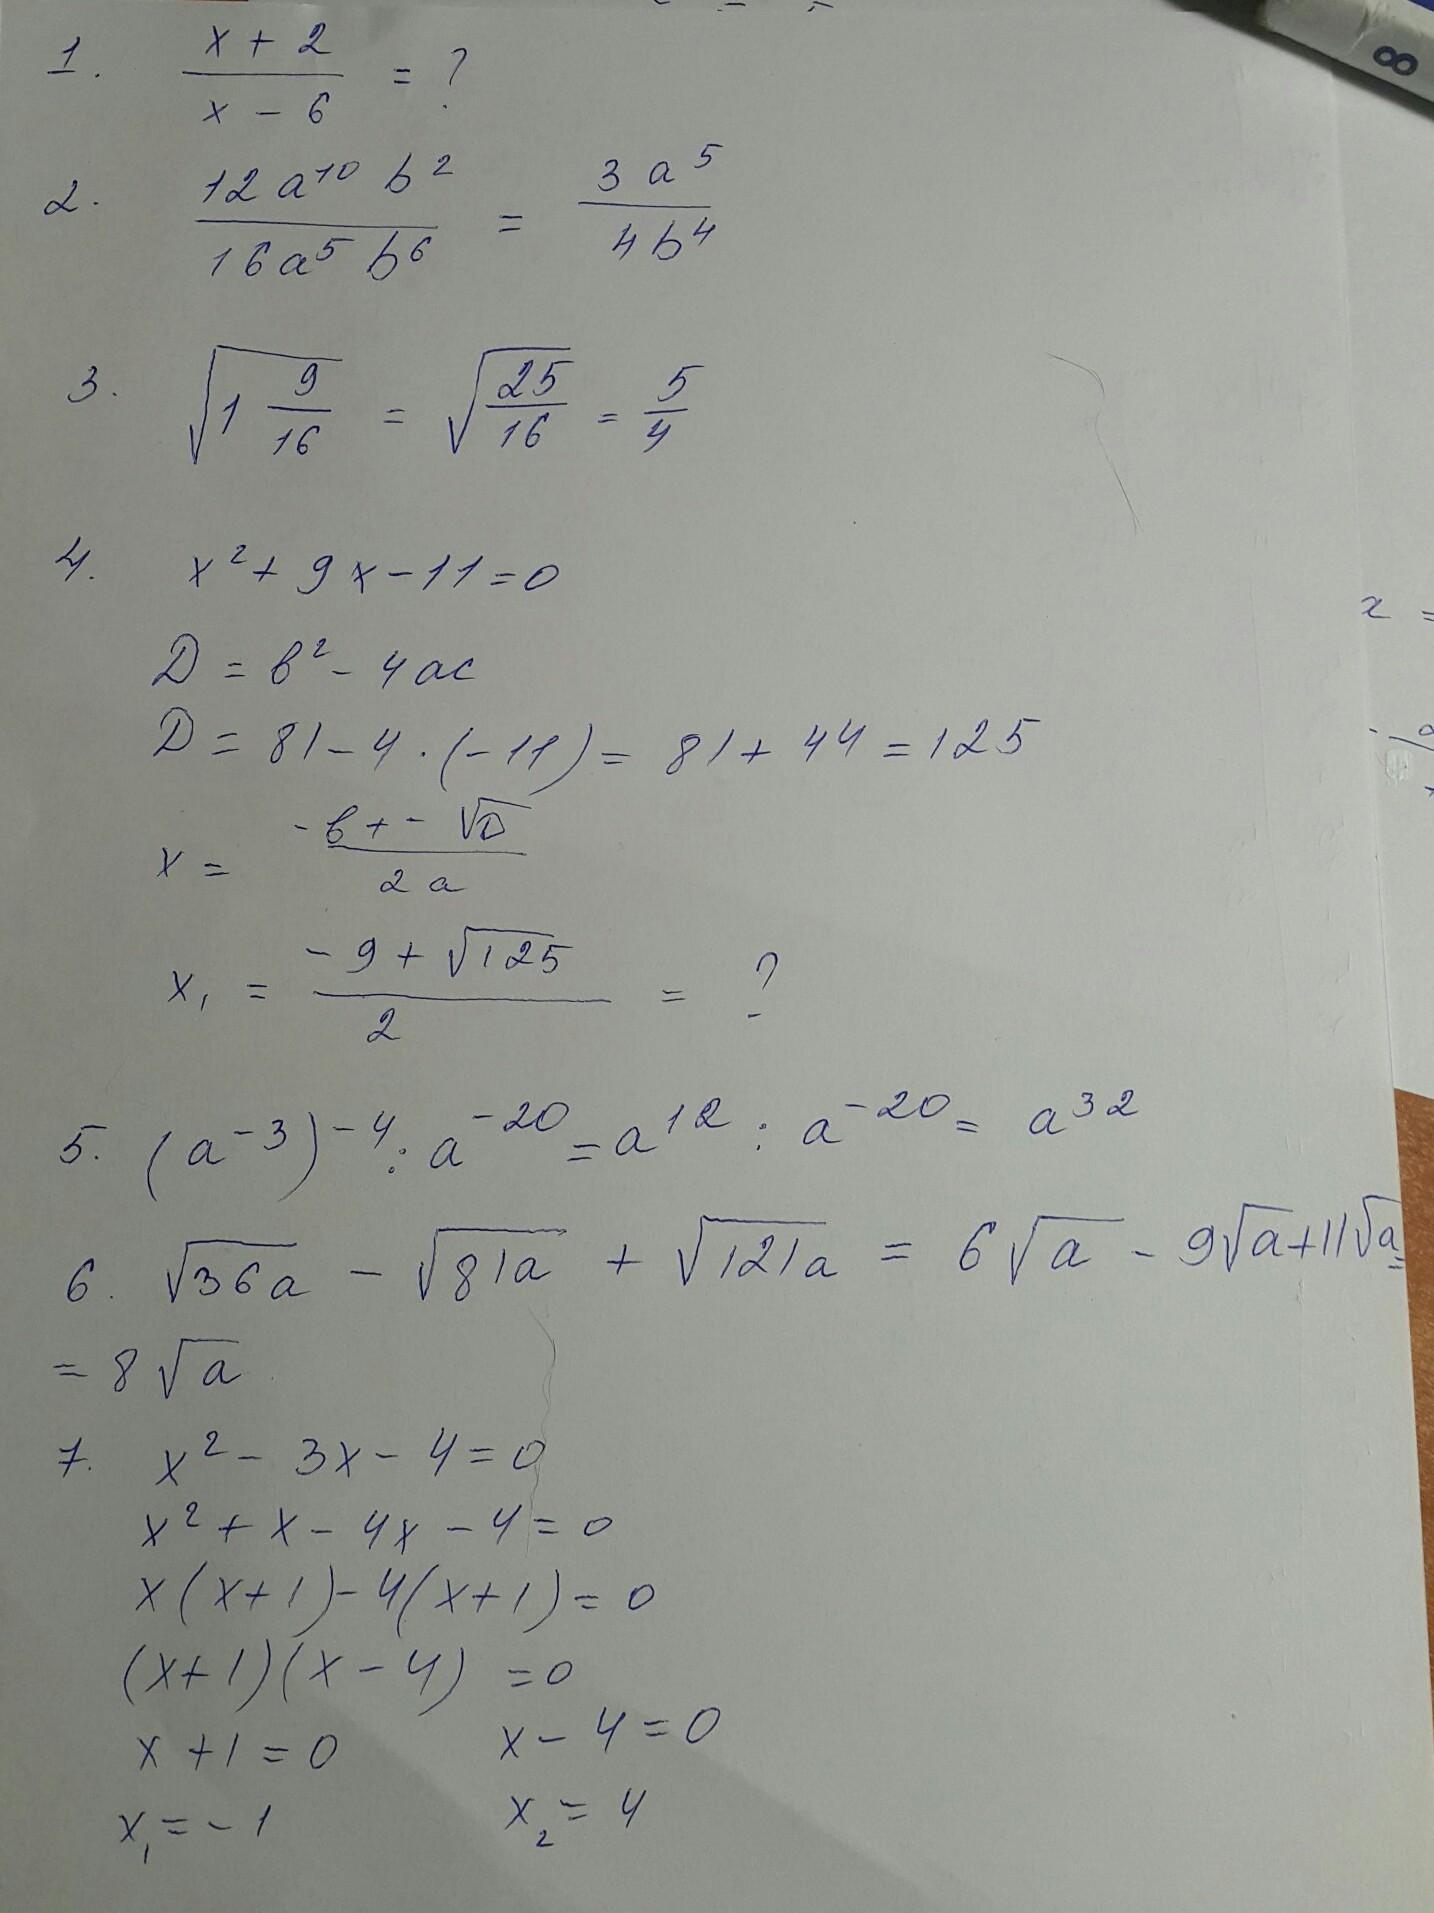 8
1. x + 2 / x - 6 = ?
2. 12a¹⁰b² / 16a⁵b⁶ = 3a⁵ / 4b⁴
3. √(1 9/16) = √(25/16) = 5/4
4. x² + 9x - 11 = 0
D = b² - 4ac
D = 81 - 4 · (-11) = 81 + 44 = 125
x = -b + - √D / 2a
x₁ = -9 + √125 / 2 = ?
5. (a⁻³)⁻⁴ : a⁻²⁰ = a¹² : a⁻²⁰ = a³²
6. √36a - √81a + √121a = 6√a - 9√a + 11√a =
= 8√a
7. x² - 3x - 4 = 0
x² + x - 4x - 4 = 0
x(x + 1) - 4(x + 1) = 0
(x + 1)(x - 4) = 0
x + 1 = 0 x - 4 = 0
x₁ = -1 x₂ = 4
x =